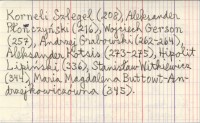 Korneli Szlegel (208), Aleksander
Płończyński (216), Wojciech Gerson
(257), Andrzej Grabowski (262-264),
Aleksander Kotsis (273-275), Hipolit
Lipiński (336), Stanisław Witkiewicz
(344), Maria Magdalena Buttowt-An-
drzejkowiczówna (345).